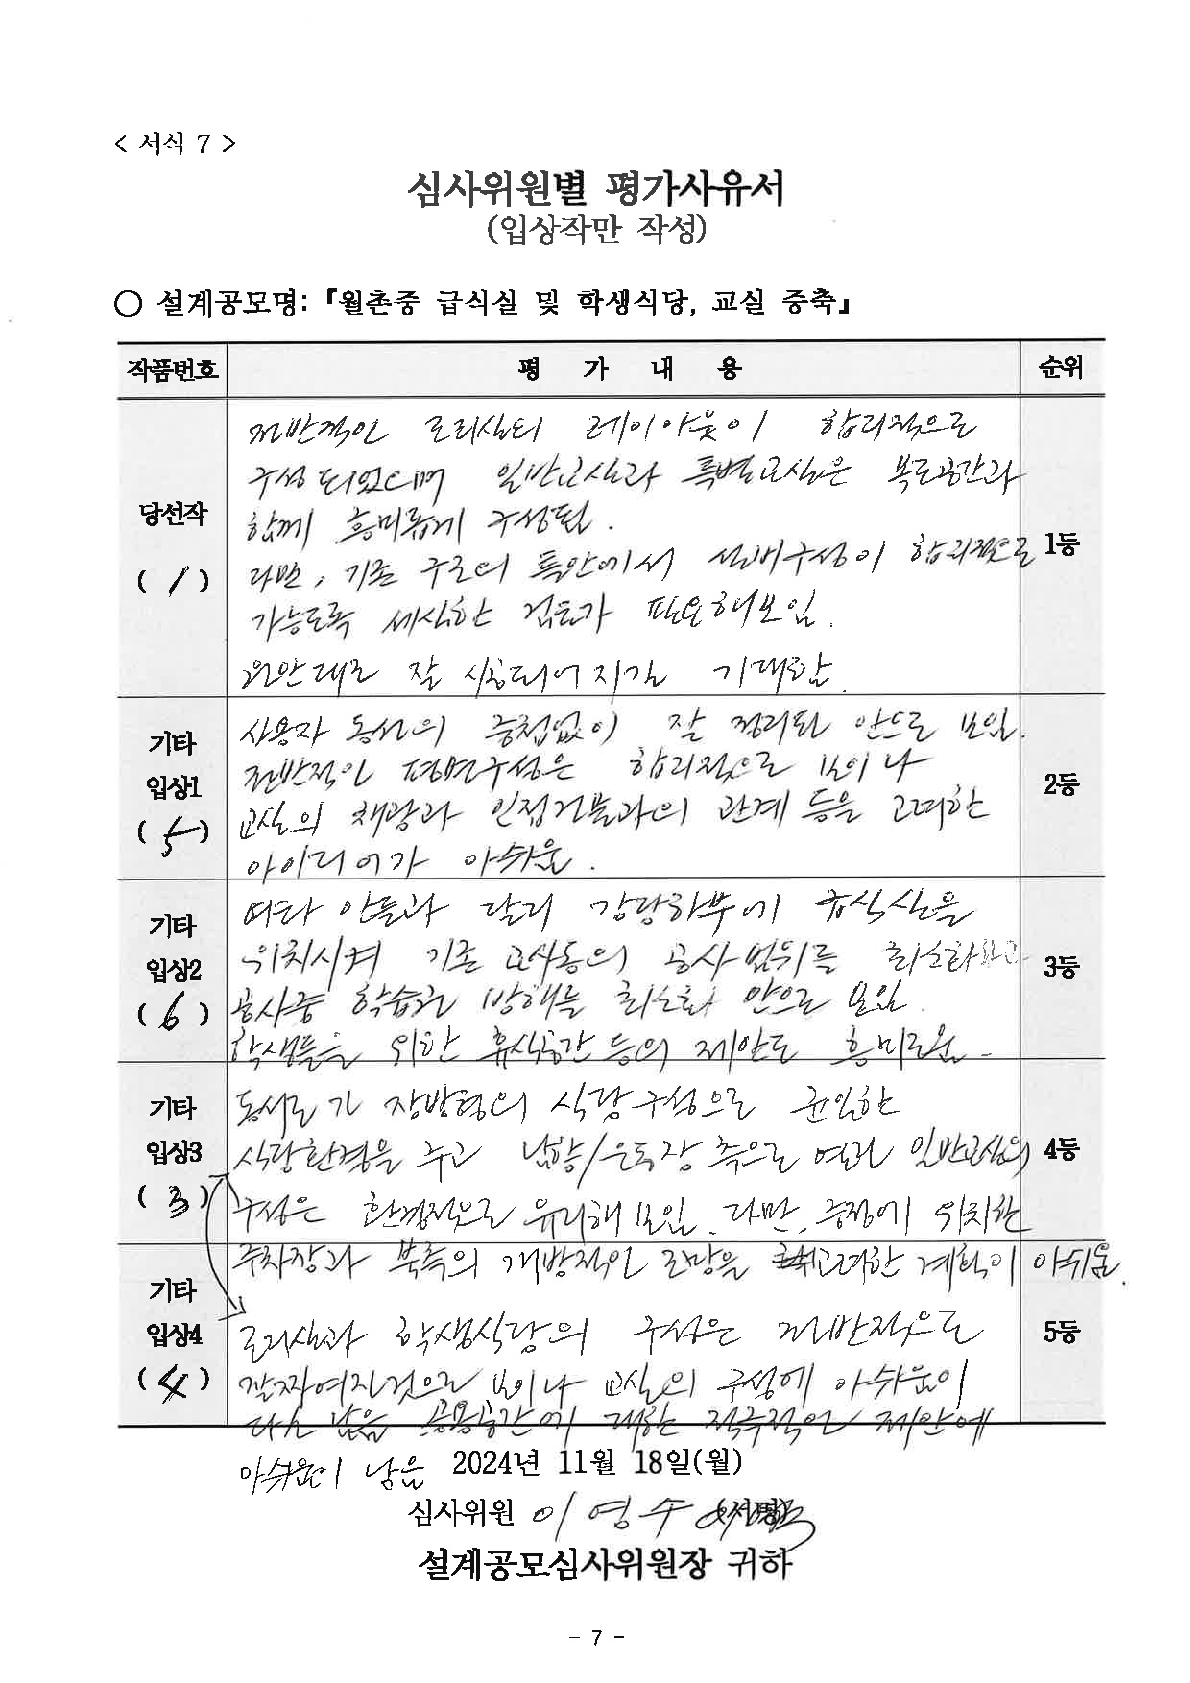 < 서식 7 >
심사위원별 평가사유서
(입상작만 작성)
○ 설계공모명:『월촌중 급식실 및 학생식당, 교실 증축』
작품번호 평 가 내 용 순위
당선작
( 1 )
전반적인 조리실의 레이아웃이 합리적으로
구성되었으며 일반교실과 특별교실은 복도공간과
함께 흥미롭게 구성됨.
다만, 기존 구조의 틀안에서 설비구성이 합리적으로
가능토록 세심한 검토가 필요해보임.
원안대로 잘 시행되어지길 기대함.
1등
기타
입상1
( 5 )
사용자 동선의 중첩없이 잘 정리된 안으로 보임.
전반적인 평면구성은 합리적으로 보이나
교실의 채광과 인접건물과의 관계 등을 고려한
아이디어가 아쉬움.
2등
기타
입상2
( 6 )
여타 안들과 달리 강당하부에 급식실을
위치시켜 기존 교사동의 공사 범위를 최소화하고
공사중 학습권 방해를 최소화 안으로 보임.
학생들을 위한 휴식공간 등의 제안도 흥미로움.
3등
기타
입상3
( 3 )
동서로 장방형의 식당구성으로 균일한
식당환경을 주고 남향/운동장 측으로 열린 일반교실의
구성은 환경적으로 유리해 보임. 다만, 중정에 위치한
주차장과 북측의 개방적인 조망을 고려한 계획이 아쉬움.
4등
기타
입상4
( 4 )
조리실과 학생식당의 구성은 전반적으로
잘짜여진것으로 보이나 교실의 구성에 아쉬움이
다소 남음 공용공간에 대한 적극적인 제안에
아쉬움이 남음
5등
2024년 11월 18일(월)
심사위원 이 영 수
설계공모심사위원장 귀하
- 7 -